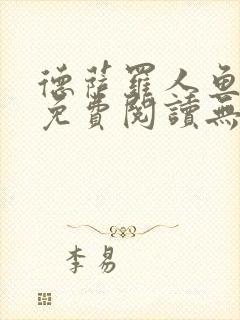 德薩羅人魚
免費閱讀無
李易